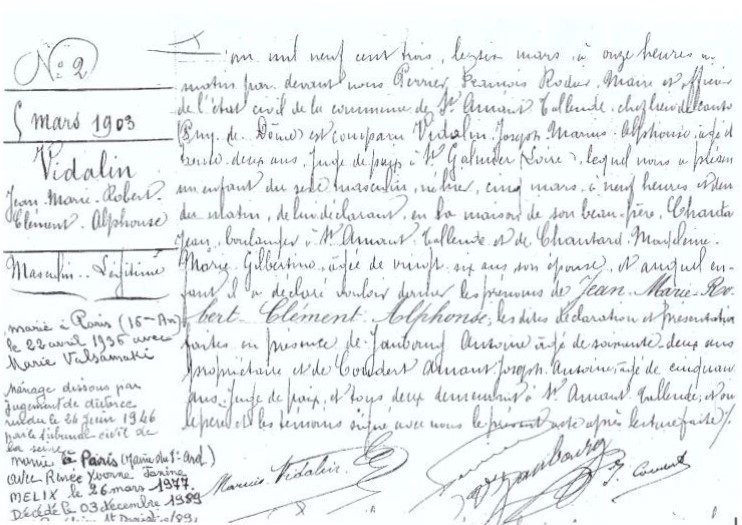 N° 2
5 mars 1903
Vidalin
Jean-Marie-Robert-
Clément-Alphonse
Masculin-Légitime
marié à Paris (16e Arr)
le 22 avril 1936 avec
Marie Valsamaki
Ménage dissous par
jugement de divorce
rendu le 26 juin 1946
par le tribunal civil de
la Seine
marié à Paris (Mairie du 1er Ard)
avec Renée Yvonne Janine
MELIX le 26 mars 1977.
Décédé le 03 décembre 1989
L'an mil neuf cent trois, le six mars à onze heures du
matin par devant nous Perrier, François Maire et officier
de l'état civil de la commune de St Amant Tallende, chef lieu de canton
(Puy-de-Dôme) est comparu Vidalin, Joseph Marius-Alphonse, âgé de
trente-deux ans, Juge de paix à St Galmier (Loire), lequel nous a présen
un enfant du sexe masculin, né hier, cinq mars à neuf heures
du matin, de lui déclarant, en la maison de son beau-père, Chanta
Jean, boulanger à St Amant-Tallende et de Chantard-Magdeleine-
Marie-Gilbertine, âgée de vingt-six ans son épouse, et auquel en-
fant il a déclaré vouloir donner les prénoms de Jean-Marie-Ro-
bert-Clément-Alphonse, les dites déclaration et présentation
faites en présence de Antoine âgé de soixante-deux ans
propriétaire et de Coudert Amant Joseph-Antoine, âgé de cinquan
ans, Juge de paix, et tous deux demeurant à St Amant Tallende, et ont
le père et les témoins signé avec nous le présent acte après lecture faite.
Marius Vidalin